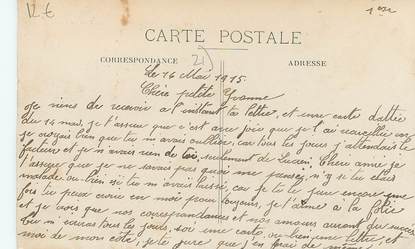 12 €
1ere
CARTE POSTALE
CORRESPONDANCE
21
ADRESSE
Le 16 Mai 1915.
Chère petite Yvonne
Je viens de recevoir à l'instant ta lettre, et une carte datée
du 14 mai, je t'assure que c'est avec joie que je l'ai
je croyais bien que tu m'avais oublié, car tous les jours j'attendais le
facteur, et je n'avais rien de toi, seulement de Chère amie je
t'assure que je ne savais pas quoi penser, n'y si tu étais
malade ou bien si tu m'avais laissé, car je te le jure encore une
fois tu peux croire en moi pour toujours, je t'aime à la folie
et je crois que nos correspondances et nos amours auront du succès
tous les jours, soit une carte, ou bien une lettre, et
moi de mon côté, je te jure que j'en ferai de